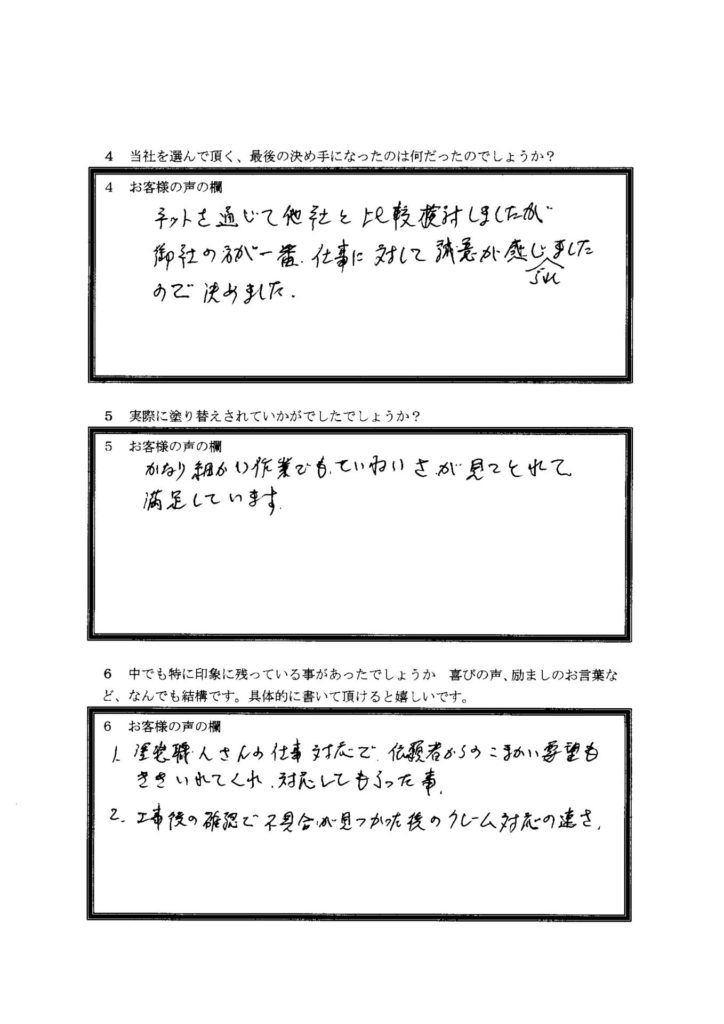 4 当社を選んで頂く、最後の決め手になったのは何だったのでしょうか?
4 お客様の声の欄
ネットを通じて他社と比較検討しましたが
御社の方が一番、仕事に対して誠意が感じられました
ので決めました.
5 実際に塗り替えされていかがでしたでしょうか?
5 お客様の声の欄
かなり細かい作業でも、ていねいさが見てとれて
満足しています.
6 中でも特に印象に残っている事があったでしょうか 喜びの声、励ましのお言葉な
ど、なんでも結構です。具体的に書いて頂けると嬉しいです。
6 お客様の声の欄
1. 塗装職人さんの仕事対応で、依頼者からのこまかい要望も
ききいれてくれ、対応してもらった事.
2. 工事後の確認で不具合が見つかった後のクレーム対応の速さ.